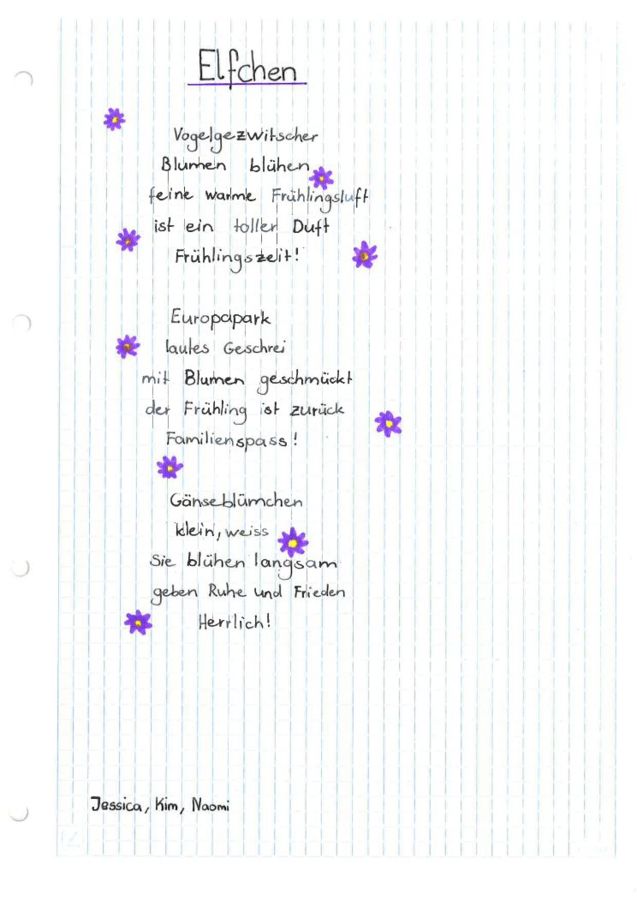 Elfchen
Vogelgezwitscher
Blumen blühen
feine warme Frühlingsluft
ist ein toller Duft
Frühlingszeit!
Europapark
lautes Geschrei
mit Blumen geschmückt
der Frühling ist zurück
Familienspass!
Gänseblümchen
klein, weiss
Sie blühen langsam
geben Ruhe und Frieden
Herrlich!
Jessica, Kim, Naomi